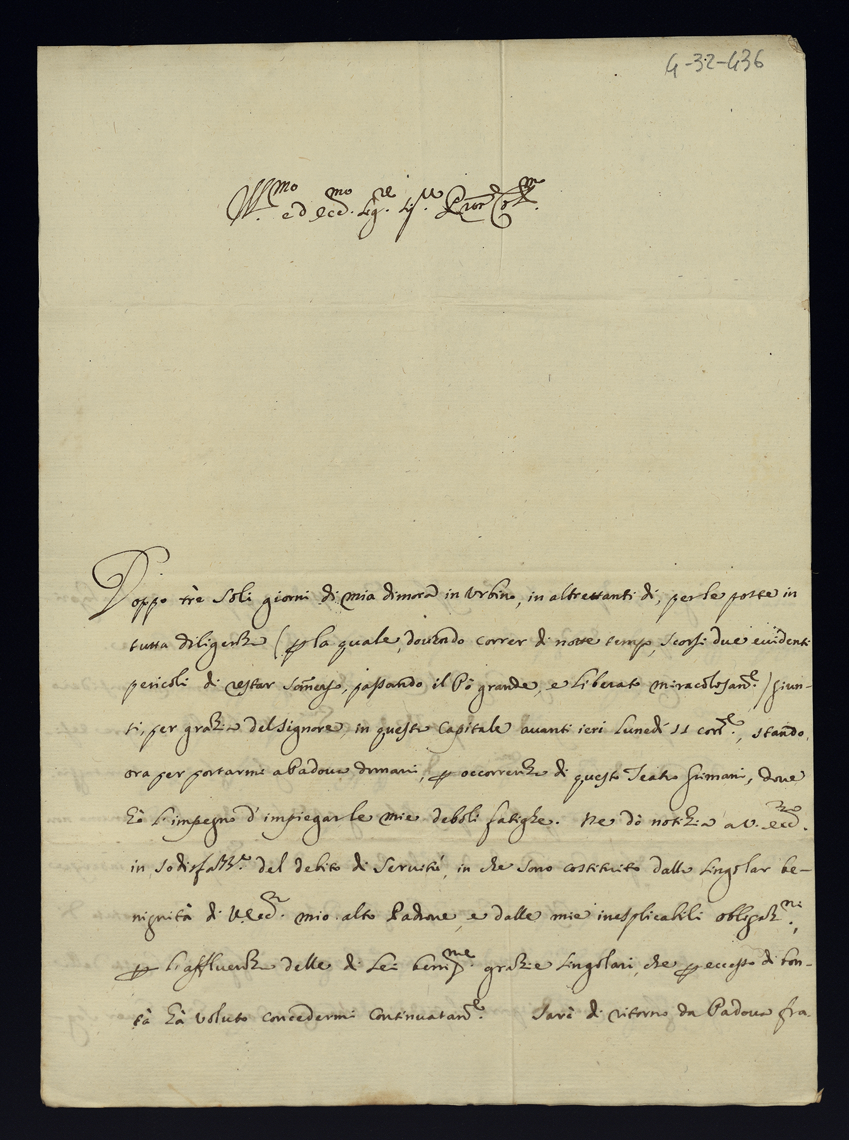 4-32-436
Ill.mo ed Ecc.mo Sig.re Sig.r Pron Col.mo
Doppo trè soli giorni di mia dimora in Urbino, in altrettanti dì, per le poste in
tutta diligenza (p la quale, dovendo correr di notte tempo, scorsi due evidenti
pericoli di restar somerso, passando il Pò grande, e liberato miracolosam.e) giun-
ti, per grazia del Signore, in questa Capitale avanti ieri Lunedì 11 corr.e, stando
ora per portarmi a Padova domani, p occorrenza di questo Teatro Grimani, dove
hò l'impegno d'impiegar le mie deboli fatighe. Ne dò notizia a V. Ecc.za
in sodisfazz.ne del debito di servitù, in che sono costituito dalla singolar be-
nignità di V. Ecc.za mio alto Padrone, e dalle mie inesplicabili obligaz.ni,
p l'affluenza delle di Lei benig.me grazie singolari, che p eccesso di bon-
tà hà voluto concedermi continuatam.e Sarò di ritorno da Padova fra